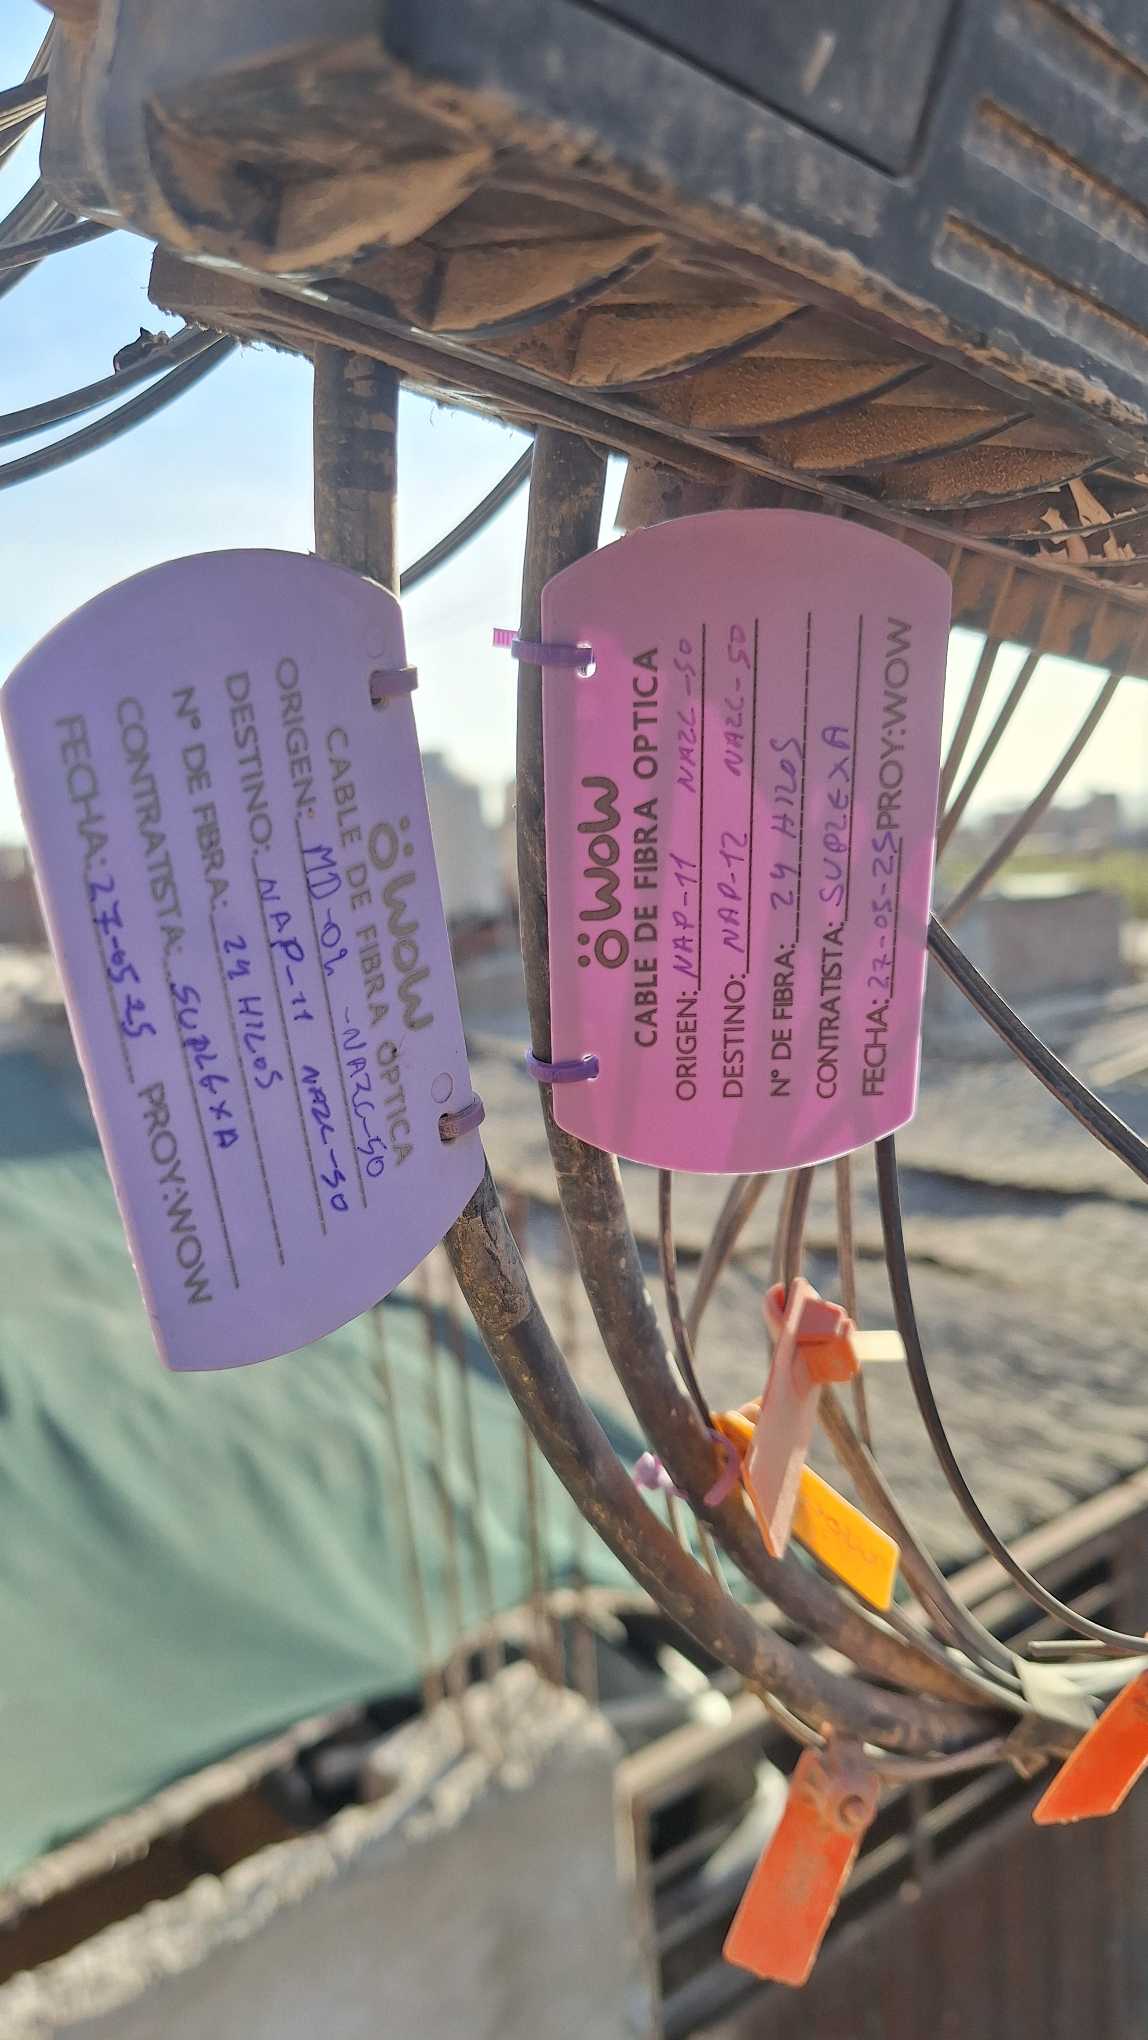 wow
CABLE DE FIBRA OPTICA
ORIGEN: MD-02 -NAZC-50
DESTINO: NAP-11 NAZC-50
N° DE FIBRA: 24 HILOS
CONTRATISTA: SUPLEXA
FECHA: 27-05-25 PROY:WOW
wow
CABLE DE FIBRA OPTICA
ORIGEN: NAP-11 NAZC-50
DESTINO: NAP-12 NAZC-50
N° DE FIBRA: 24 HILOS
CONTRATISTA: SUPLEXA
FECHA: 27-05-25 PROY:WOW